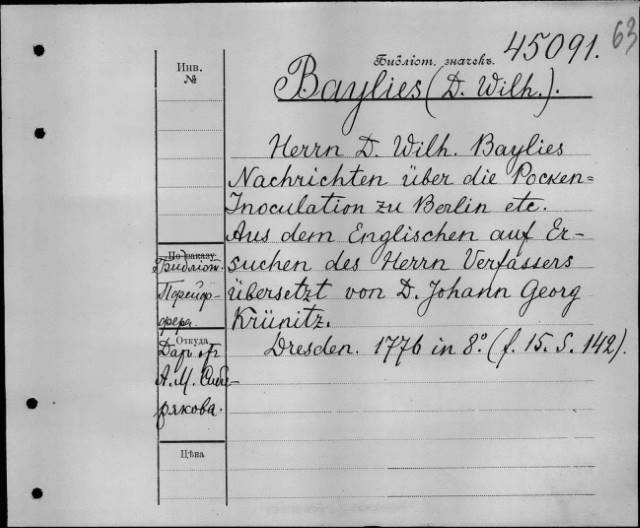 63
45091.
Инв.
№
Библіот. значекъ.
Baylies (D. Wilh.).
Herrn D. Wilh. Baylies
Nachrichten über die Pocken=
Inoculation zu Berlin etc.
Aus dem Englischen auf Er-
suchen des Herrn Verfassers
übersetzt von D. Johann Georg
Krünitz.
Dresden. 1776 in 8° (f. 15. S. 142).
По заказу
Откуда
Даръ от
А. М. Сиби-
рякова.
Цѣна